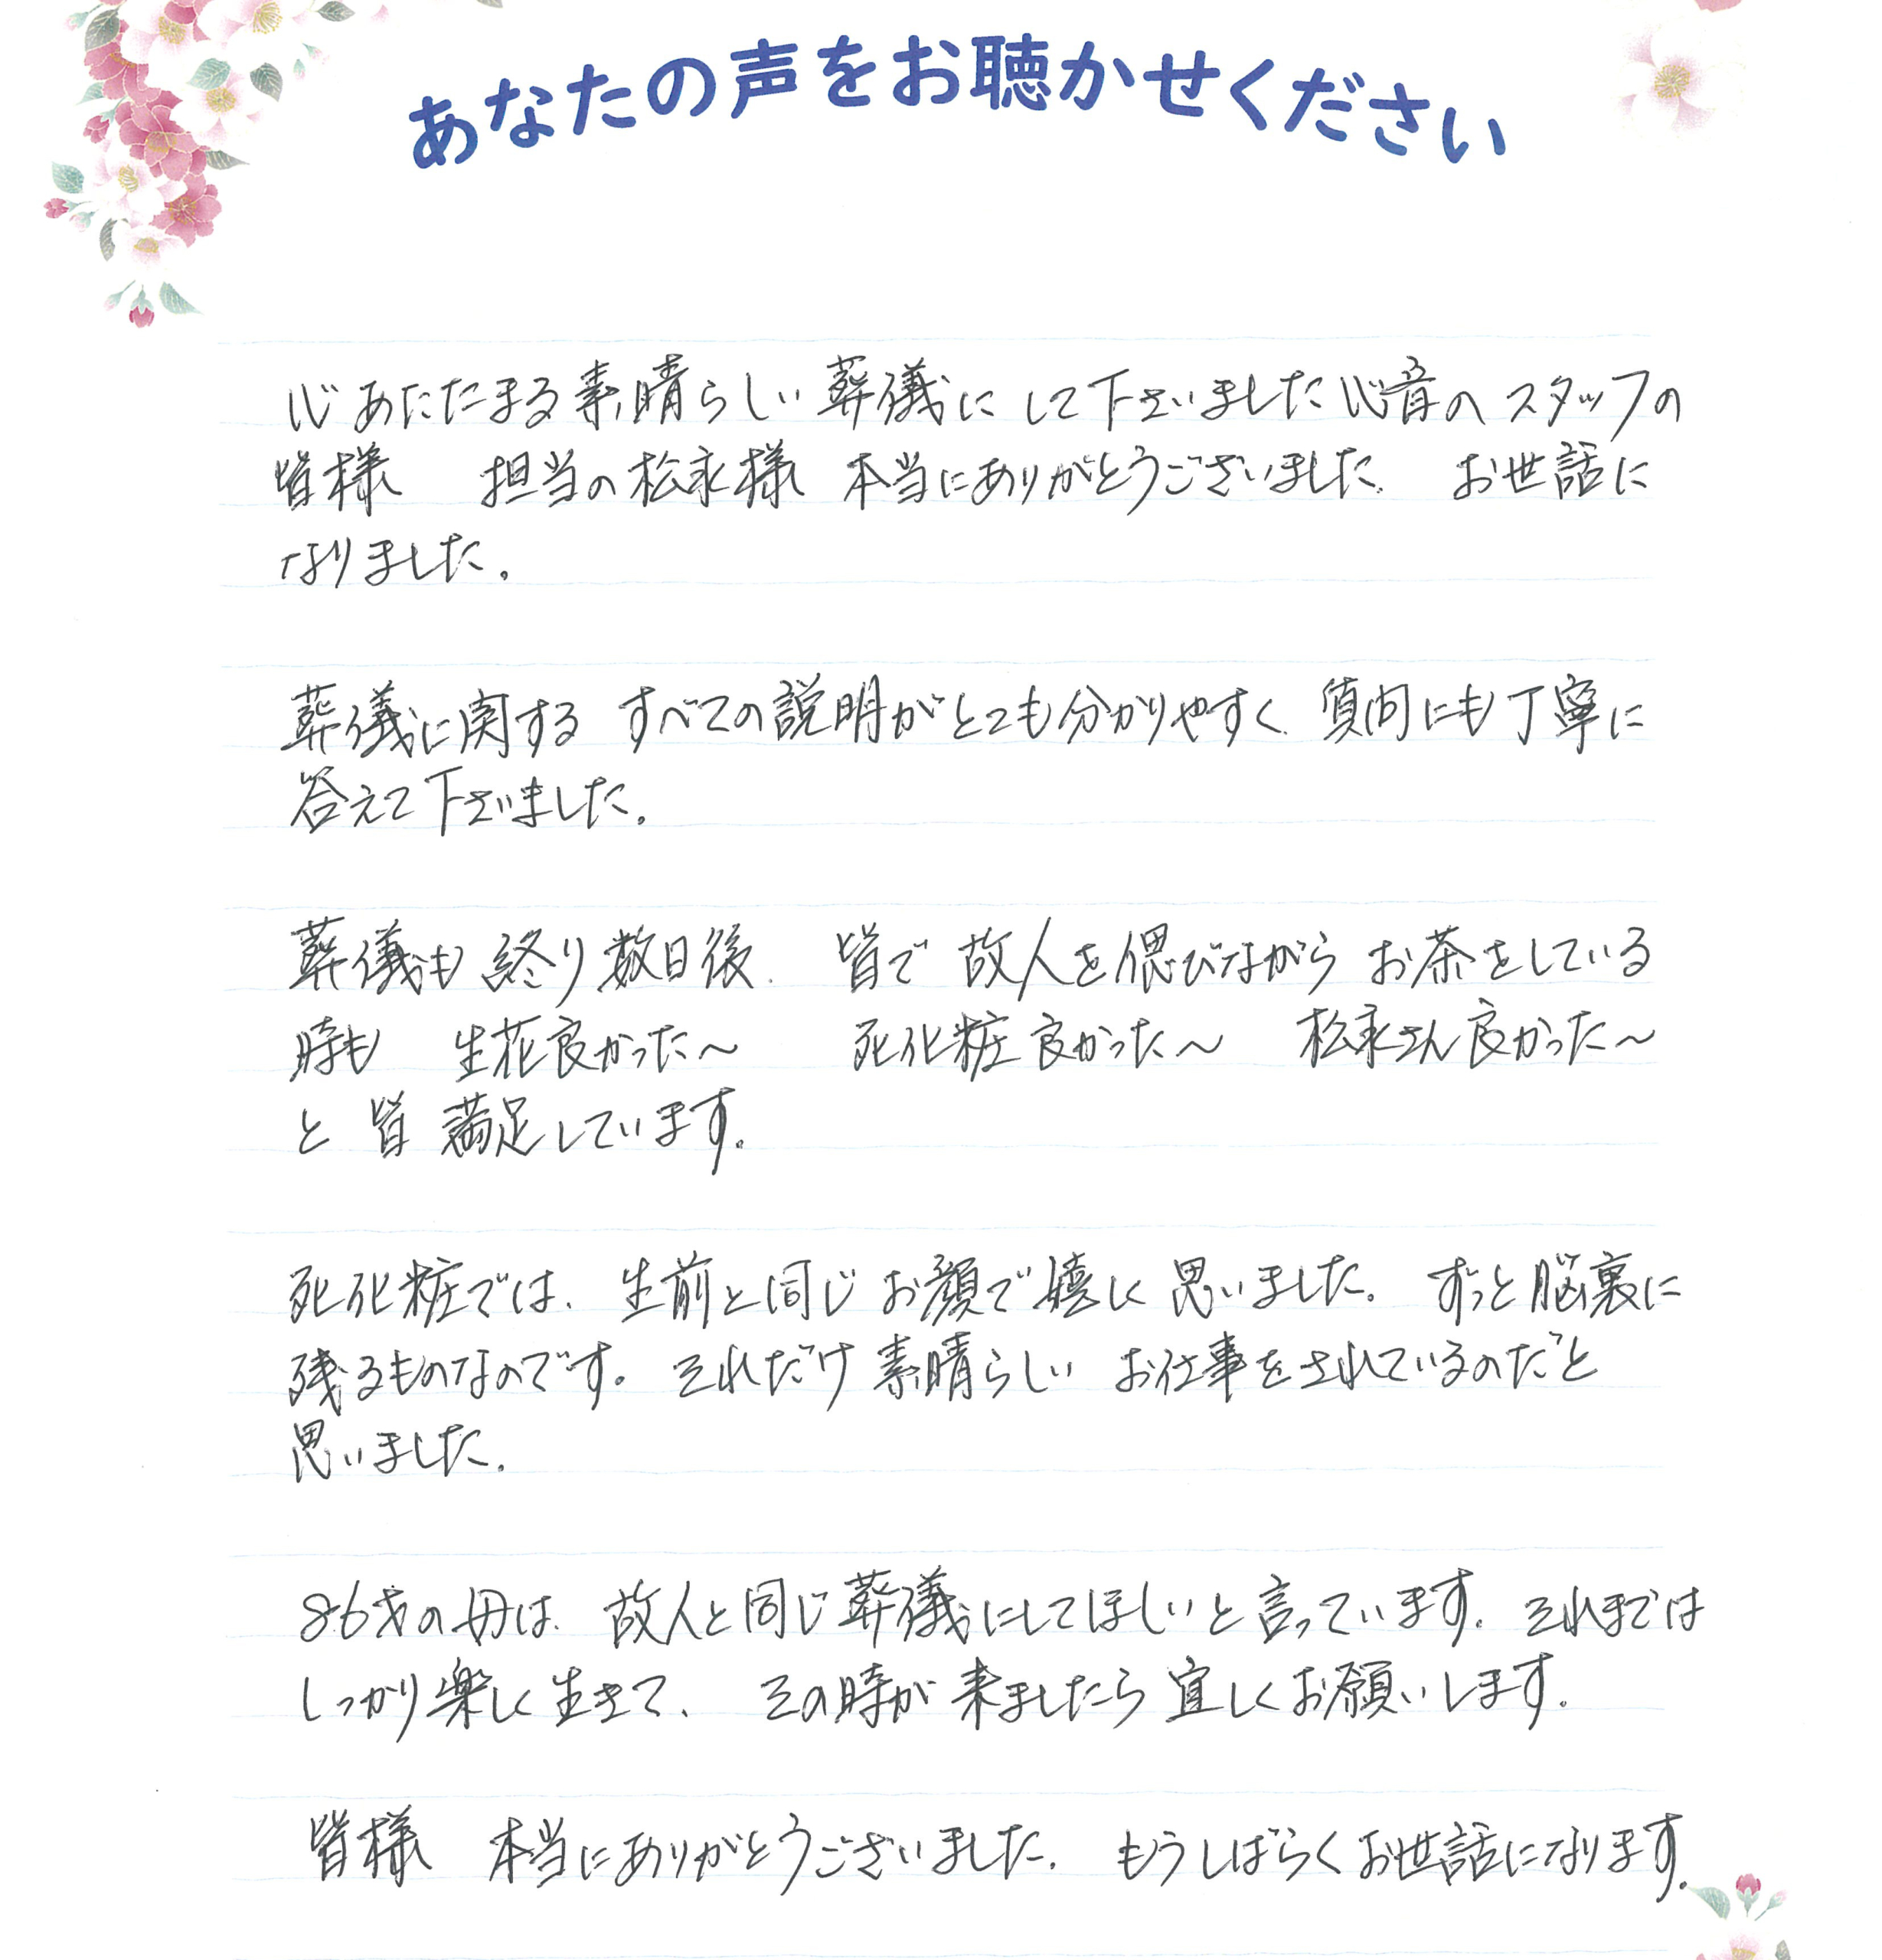 あなたの声をお聴かせください
心あたたまる素晴らしい葬儀にして下さいました心音のスタッフの
皆様　担当の松永様 本当にありがとうございました。　お世話に
なりました。
葬儀に関する すべての説明がとても分かりやすく、質問にも丁寧に
答えて下さいました。
葬儀も終り数日後、　皆で 故人を偲びながら お茶をしている
時も　生花良かった〜　死化粧良かった〜　松永さん良かった〜
と 皆 満足しています。
死化粧では、生前と同じ お顔で嬉しく思いました。 ずっと脳裏に
残るものなのです。 それだけ素晴らしい お仕事をされているのだと
思いました。
86才の母は、故人と同じ葬儀にしてほしいと言っています。それまでは
しっかり楽しく生きて、　その時が来ましたら宜しくお願いします。
皆様　本当にありがとうございました。　もうしばらくお世話になります。